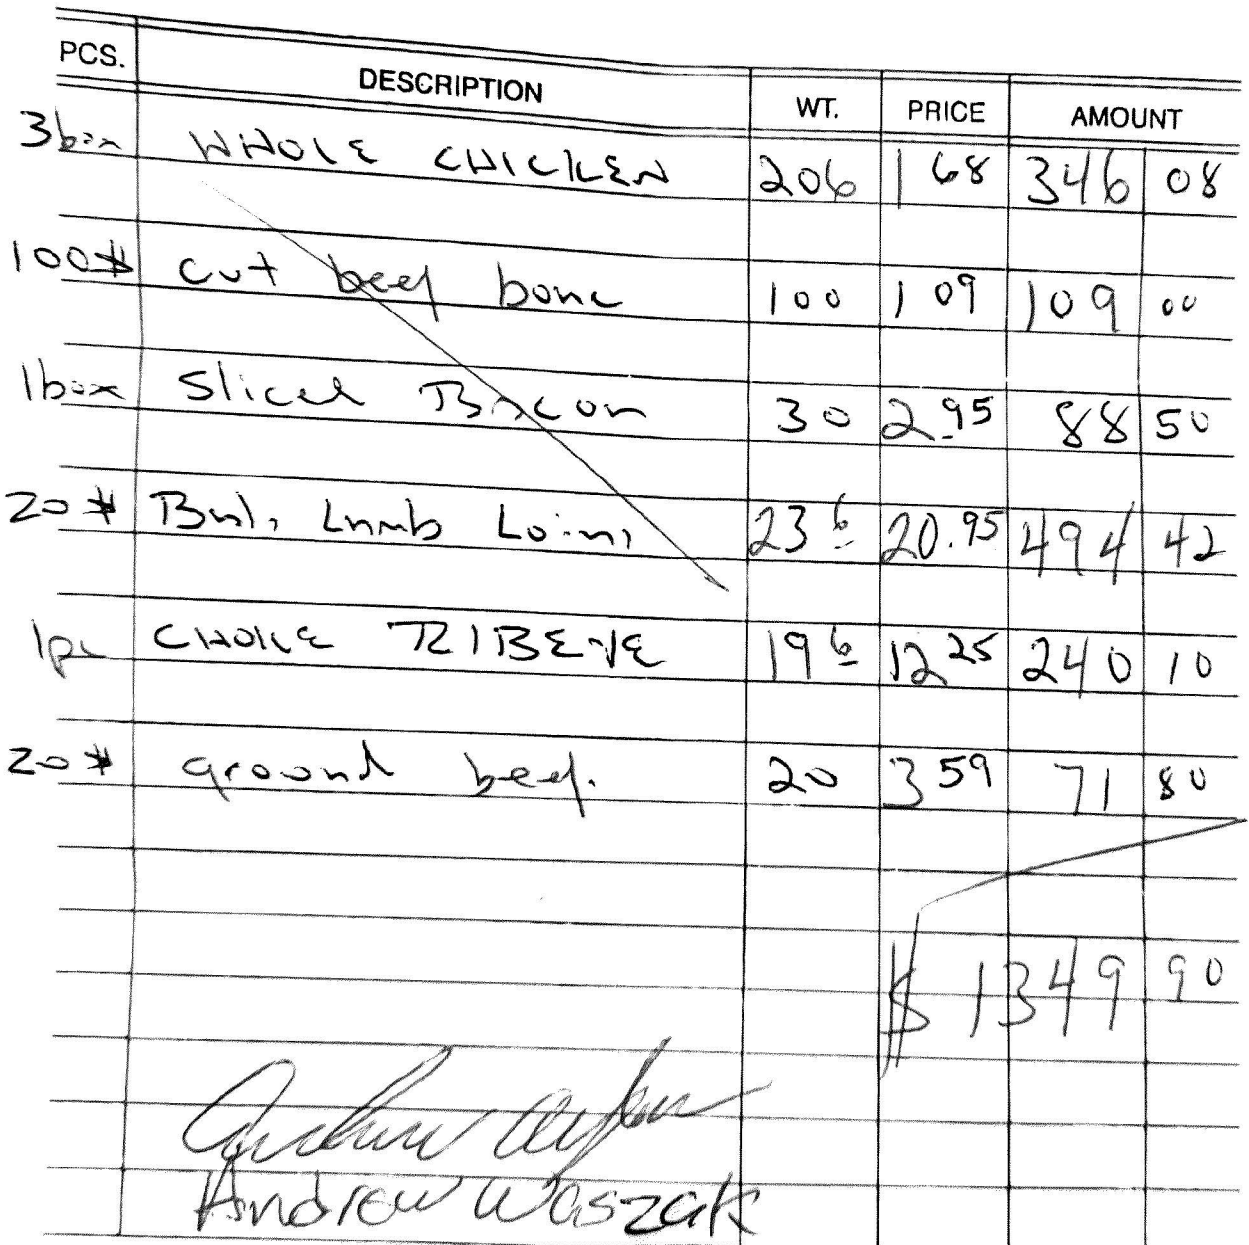 PCS. DESCRIPTION WT. PRICE AMOUNT
3 box WHOLE CHICKEN 206 1 68 346 08
100# cut beef bone 100 1 09 109 00
1 box Sliced Bacon 30 2.95 88 50
20# Bnls Lamb Loins 23 6 20.95 494 42
1pc CHOICE RIBEYE 19 6 12 25 240 10
20# ground beef. 20 3 59 71 80
$ 1349 90
Andrew Waszak